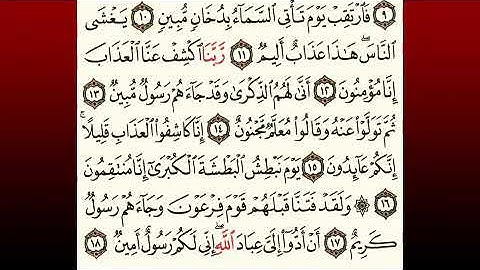 ٩ فَٱرْتَقِبْ يَوْمَ تَأْتِى ٱلسَّمَآءُ بِدُخَانٍ مُّبِينٍ ١٠ يَغْشَى
ٱلنَّاسَ ۖ هَٰذَا عَذَابٌ أَلِيمٌ ١١ رَّبَّنَا ٱكْشِفْ عَنَّا ٱلْعَذَابَ
إِنَّا مُؤْمِنُونَ ١٢ أَنَّىٰ لَهُمُ ٱلذِّكْرَىٰ وَقَدْ جَآءَهُمْ رَسُولٌ مُّبِينٌ ١٣
ثُمَّ تَوَلَّوْا۟ عَنْهُ وَقَالُوا۟ مُعَلَّمٌ مَّجْنُونٌ ١٤ إِنَّا كَاشِفُوا۟ ٱلْعَذَابِ قَلِيلًا ۚ
إِنَّكُمْ عَآئِدُونَ ١٥ يَوْمَ نَبْطِشُ ٱلْبَطْشَةَ ٱلْكُبْرَىٰٓ إِنَّا مُنتَقِمُونَ
١٦ ۞ وَلَقَدْ فَتَنَّا قَبْلَهُمْ قَوْمَ فِرْعَوْنَ وَجَآءَهُمْ رَسُولٌ
كَرِيمٌ ١٧ أَنْ أَدُّوٓا۟ إِلَىَّ عِبَادَ ٱللَّهِ ۖ إِنِّى لَكُمْ رَسُولٌ أَمِينٌ ١٨